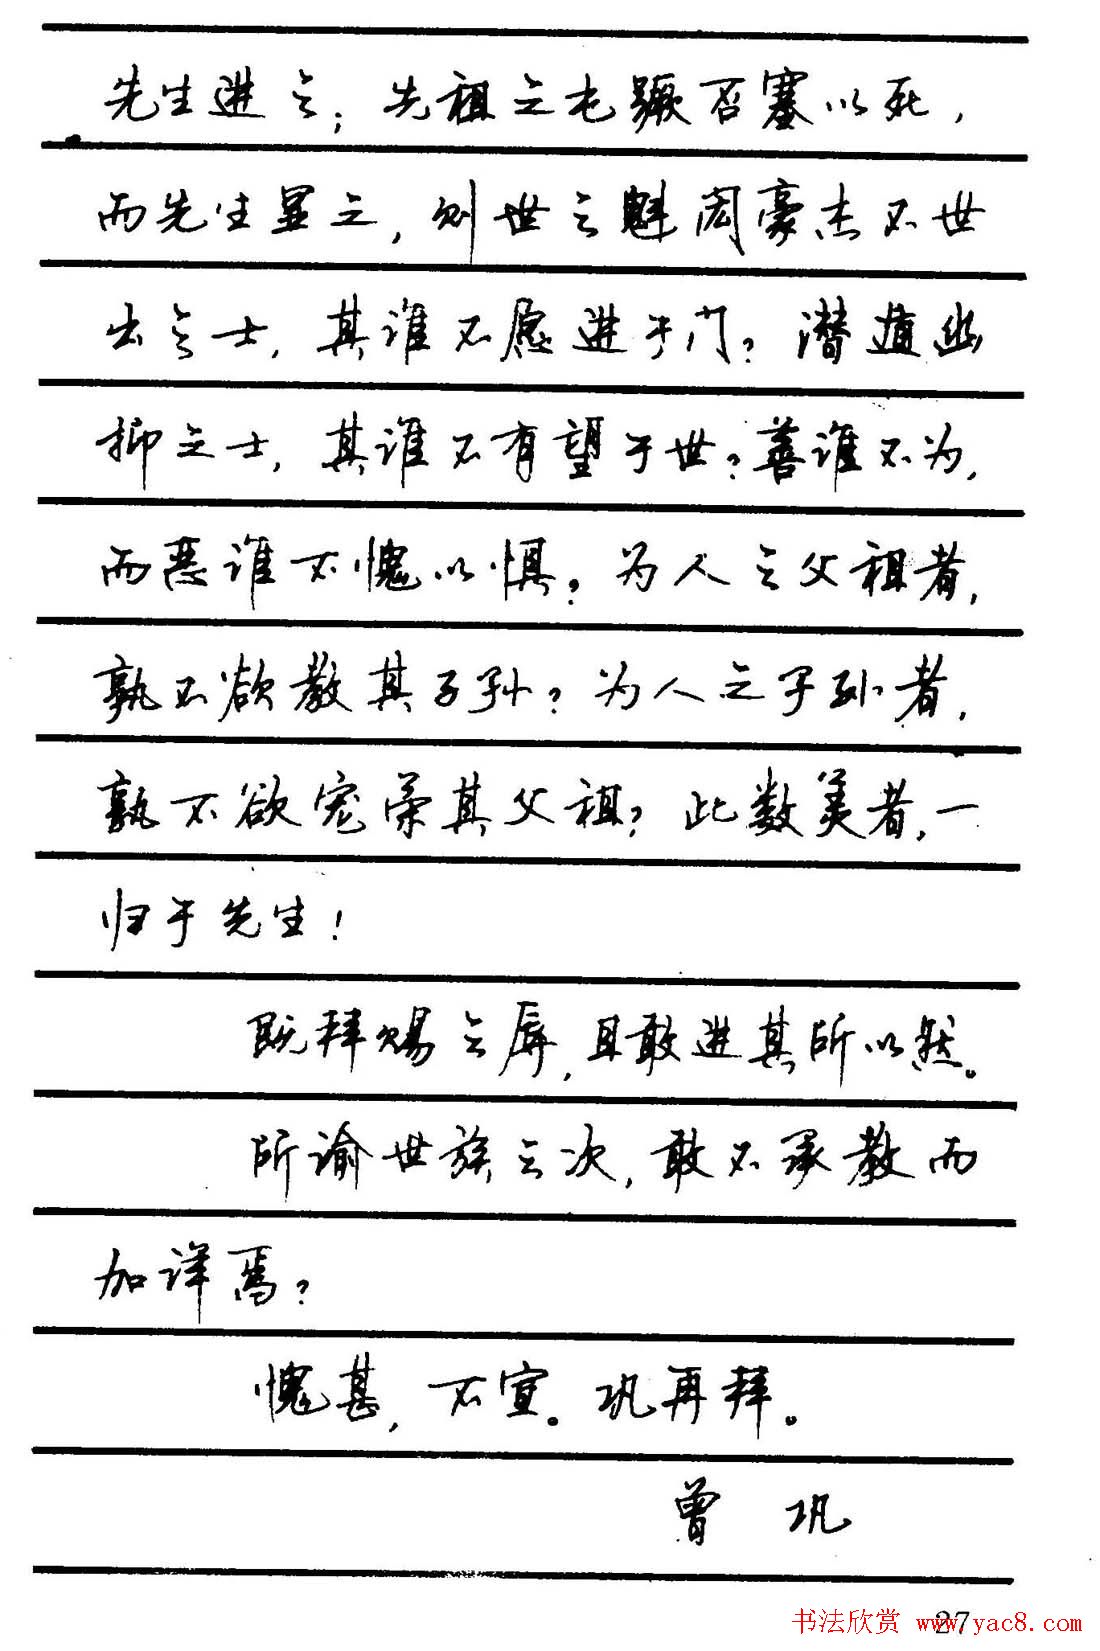 先生进之；先祖之屯蹶否塞以死，
而先生显之，则世之魁闳豪杰不世
出之士，其谁不愿进于门？潜遁幽
抑之士，其谁不有望于世？善谁不为，
而恶谁不愧以惧？为人之父祖者，
孰不欲教其子孙？为人之子孙者，
孰不欲宠荣其父祖？此数美者，一
归于先生！
既拜赐之辱，且敢进其所以然。
所谕世族之次，敢不承教而
加详焉？
愧甚，不宣。巩再拜。
曾 巩
27
书法欣赏 www.yac8.com